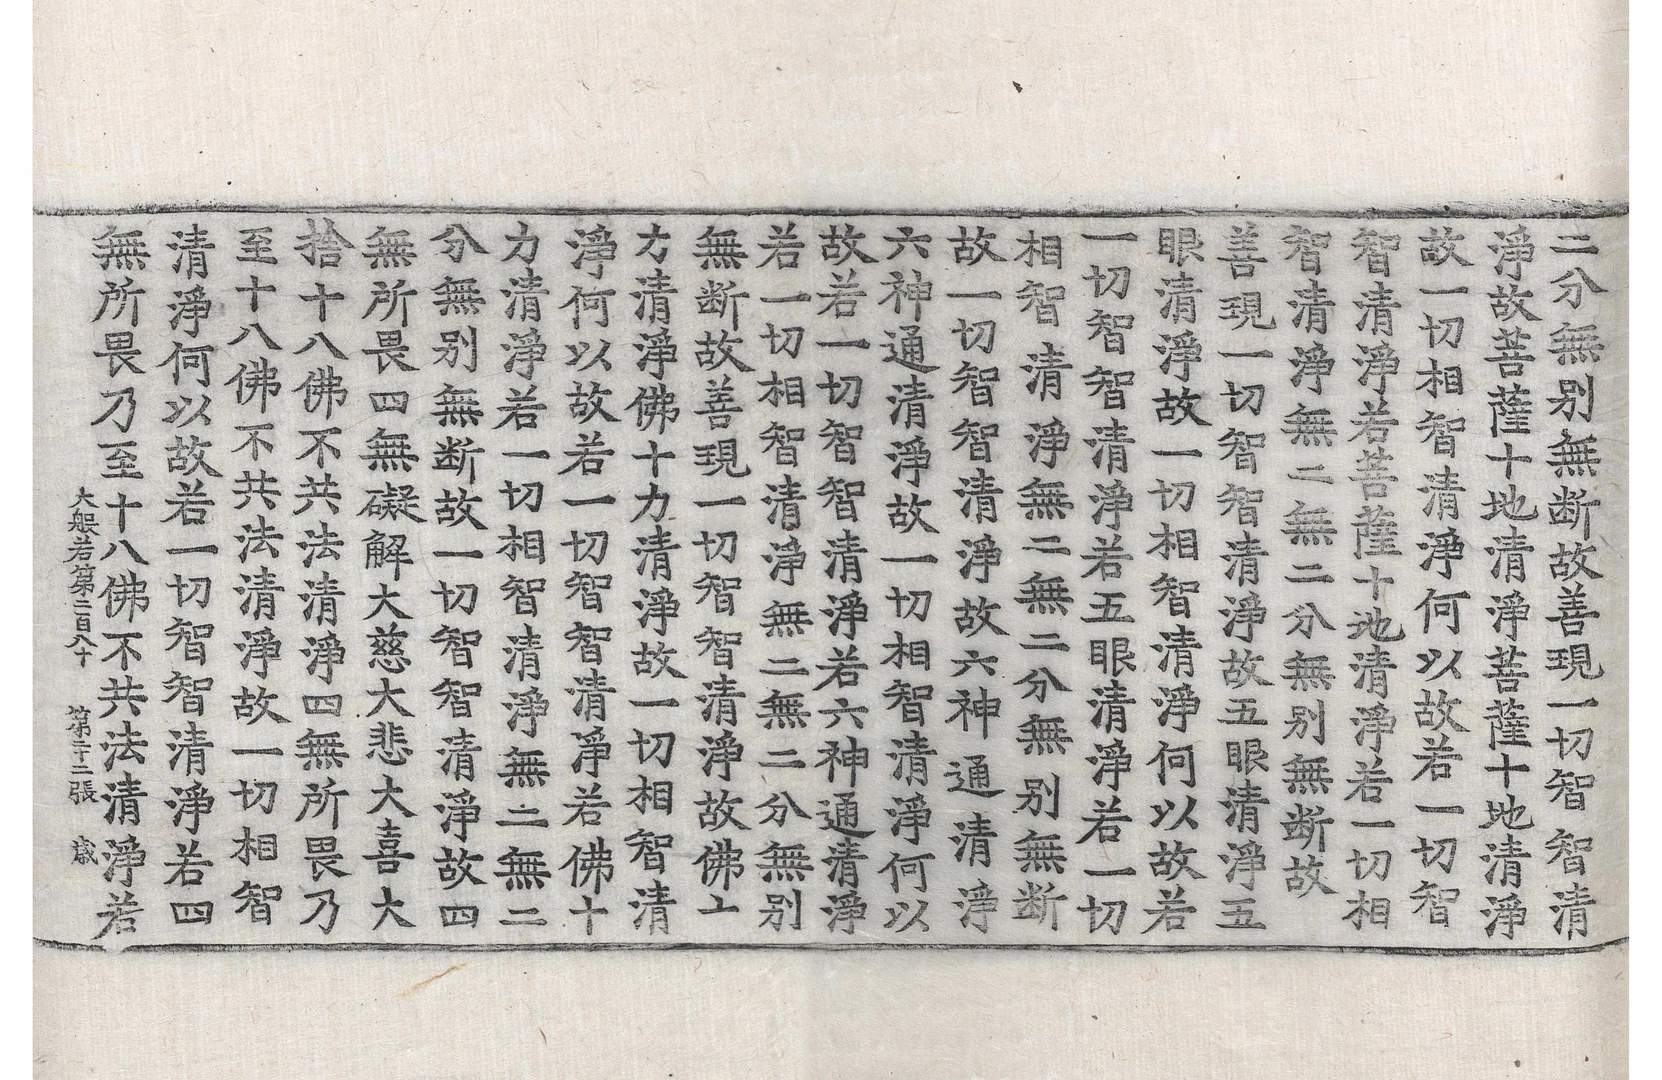 二分無别無断故善現一切智智清
淨故菩薩十地清淨菩薩十地清淨
故一切相智清淨何以故若一切智
智清淨若菩薩十地清淨若一切相
智清淨無二無二分無别無断故
善現一切智智清淨故五眼清淨五
眼清淨故一切相智清淨何以故若
一切智智清淨若五眼清淨若一切
相智清淨無二無二分無别無断
故一切智智清淨故六神通清淨
六神通清淨故一切相智清淨何以
故若一切智智清淨若六神通清淨
若一切相智清淨無二無二分無别
無断故善現一切智智清淨故佛十
力清淨佛十力清淨故一切相智清
淨何以故若一切智智清淨若佛十
力清淨若一切相智清淨無二無二
分無别無断故一切智智清淨故四
無所畏四無礙解大慈大悲大喜大
捨十八佛不共法清淨四無所畏乃
至十八佛不共法清淨故一切相智
清淨何以故若一切智智清淨若四
無所畏乃至十八佛不共法清淨若
大般若第二百八十 第二十二張 歲